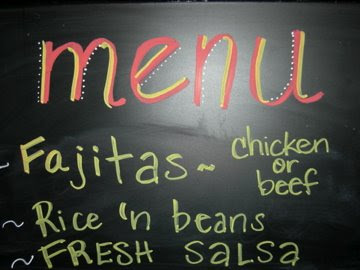 menu
~ Fajitas ~ chicken
or
beef
~ Rice 'n beans
~ FRESH SALSA